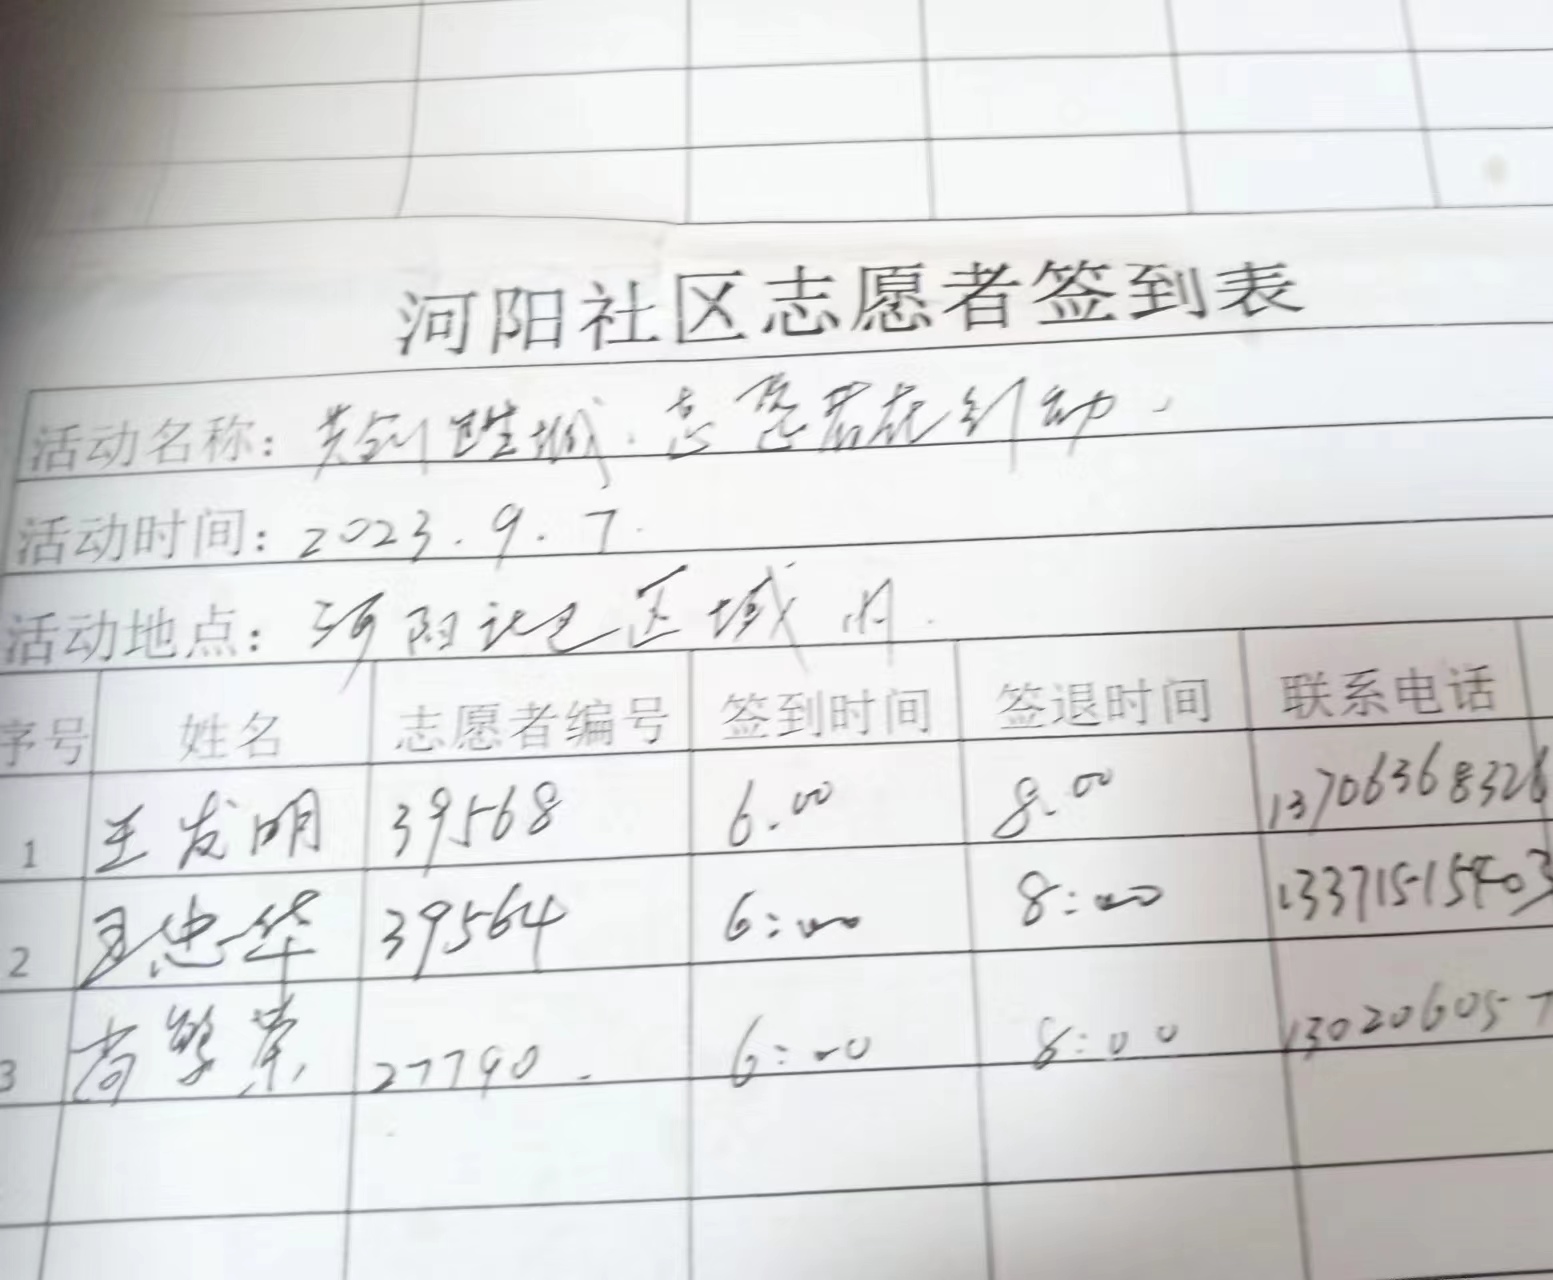 河阳社区志愿者签到表
活动名称: 共创卫生城.志愿者在行动.
活动时间: 2023.9.7.
活动地点: 河阳社区区域内.
序号 姓名 志愿者编号 签到时间 签退时间 联系电话
1 王发明 39568 6.00 8.00 13706368326
2 王忠华 39564 6:00 8:00 13371515403
3 尚 荣 27790. 6:00 8:00 130206057